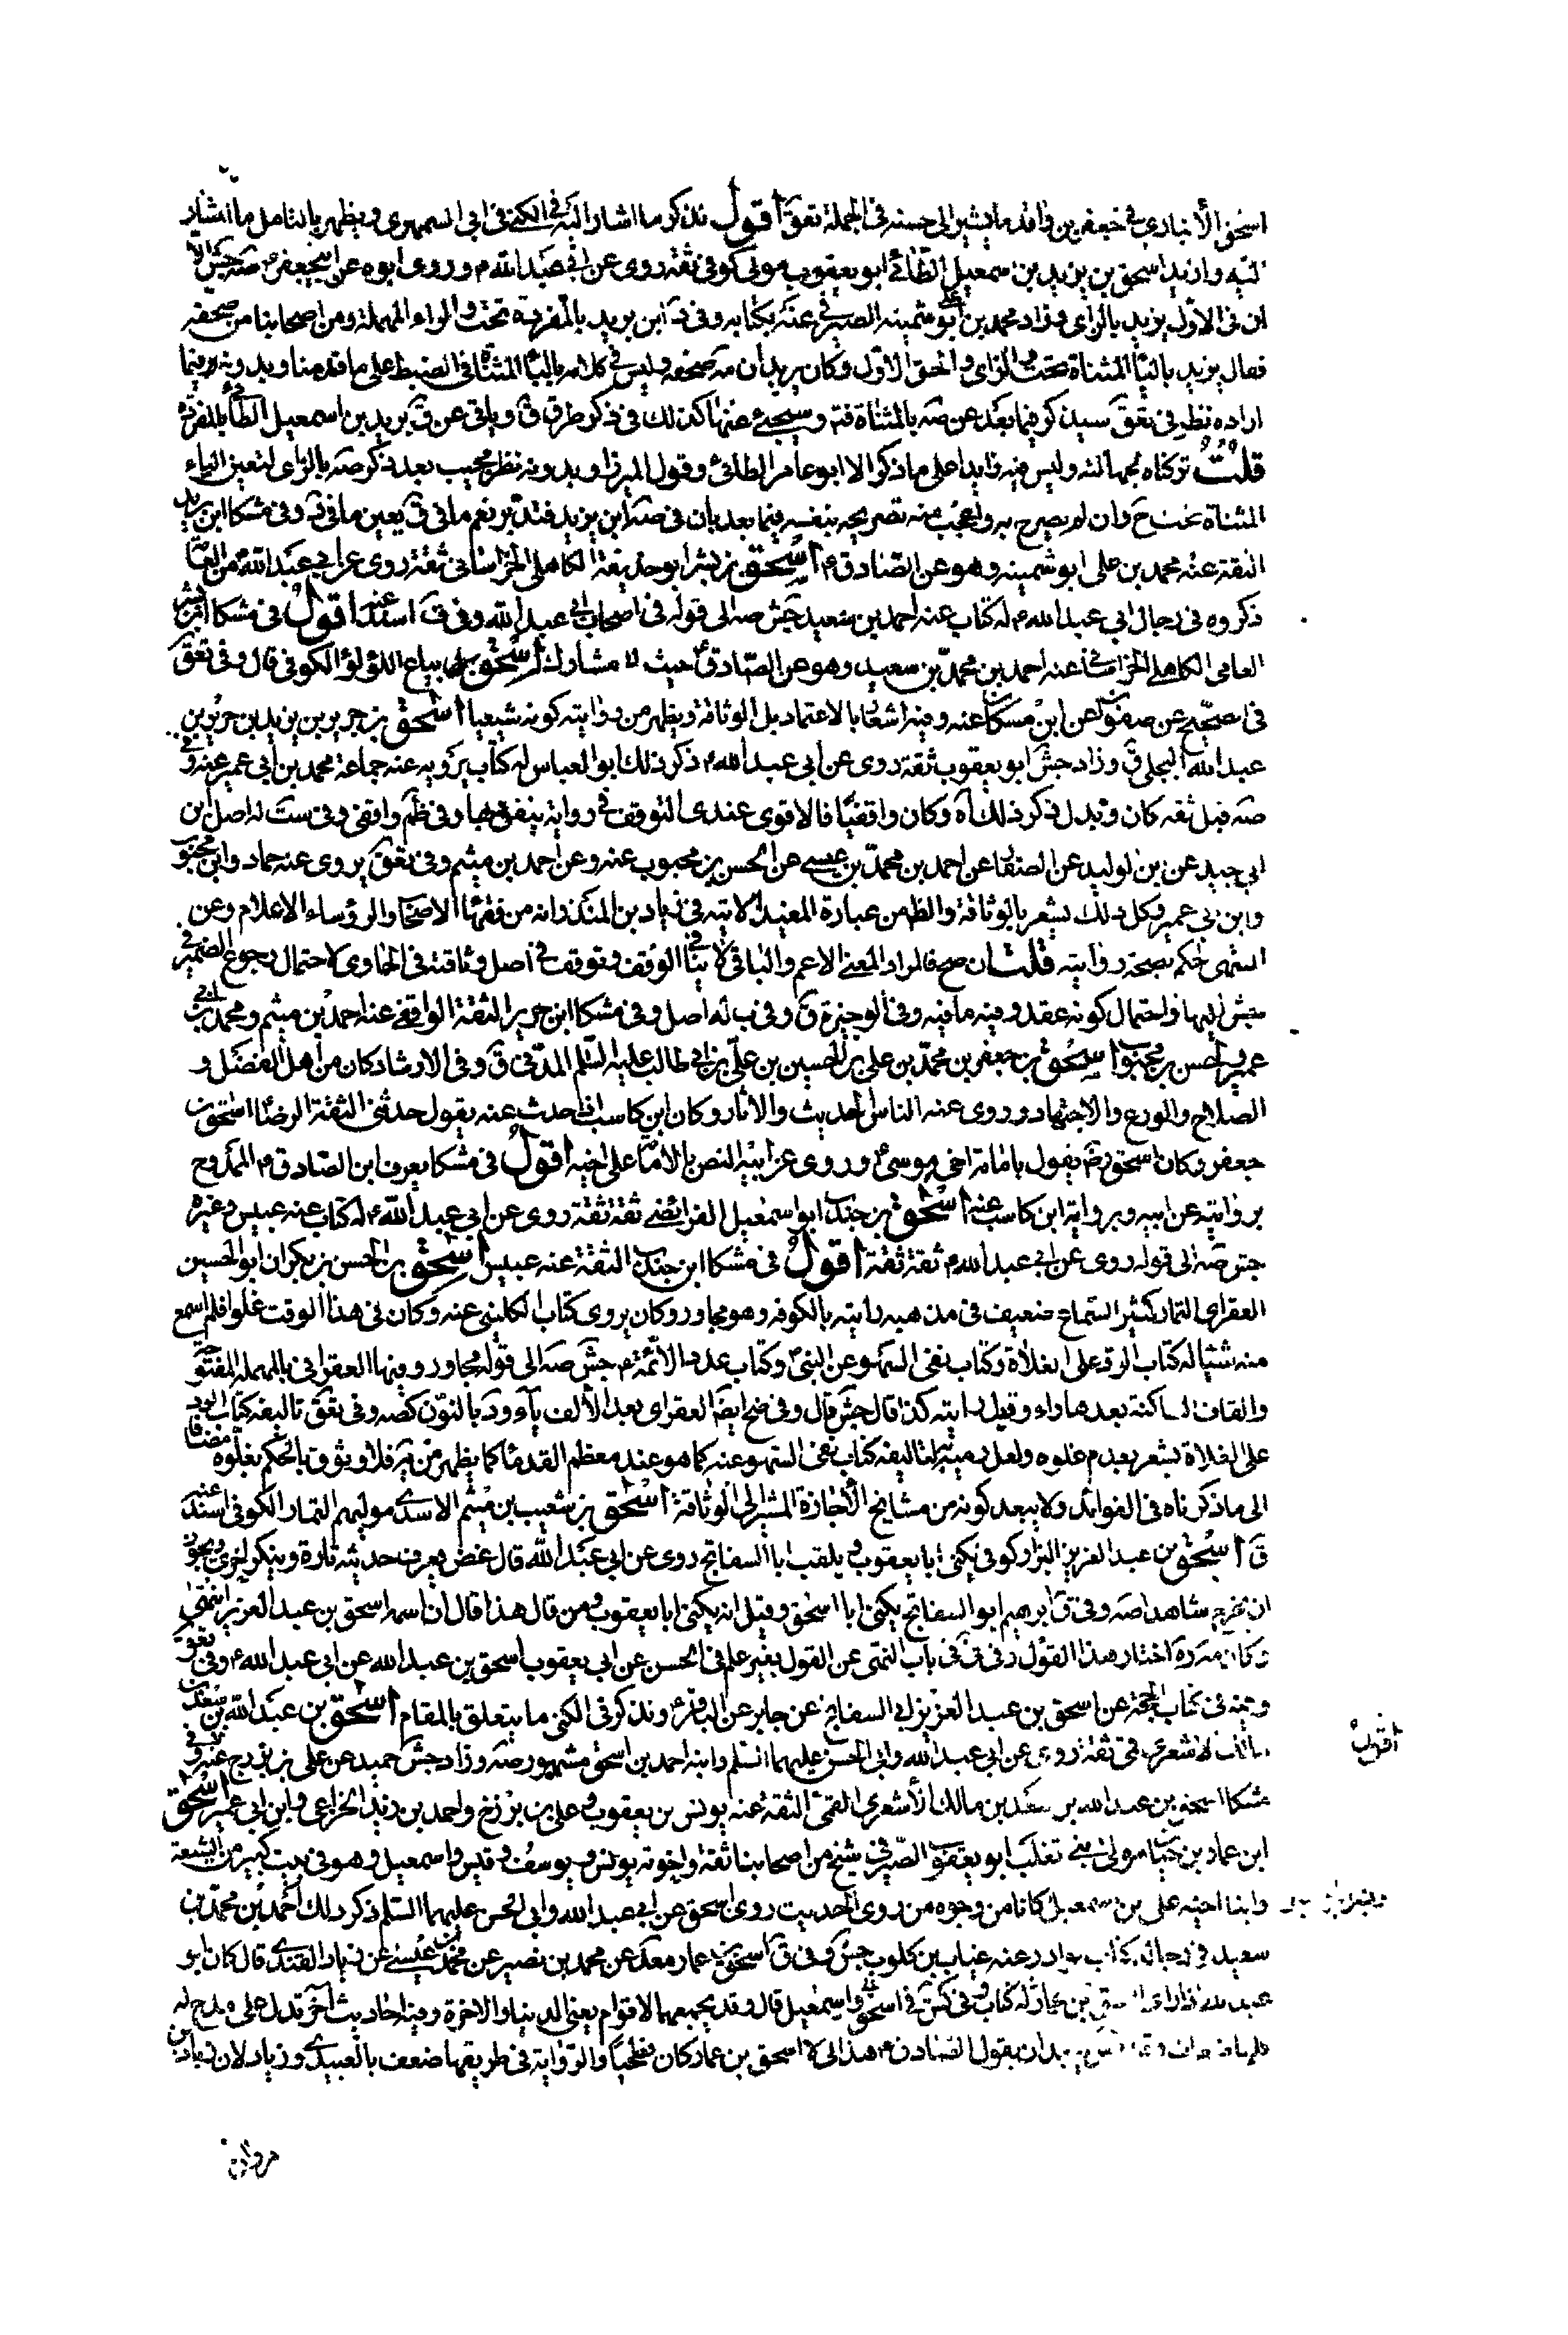 اسحق الأنباری فی جعفر بن واقد ما یشیر الی حسنه فی الجملة تعق اقول نذکر ما اشار الیه فی الکنی فی ابی السمهری ویظهر بالتامل ما اشار
الیه وازید اسحق بن یزید بن اسمعیل الطائی ابو یعقوب مولی کوفی ثقة روی عن ابی عبد الله م وروی ابوه عن ابی جعفر م صه جش الا
ان فی الاول یزید بالزای وزاد محمد بن علی ابو سمینه الصیرفی عنه بکتابه وفی د ابن برید بالمفردة تحت والراء المهملة ومن اصحابنا من صحفه
فقال یزید بالیاء المثناة تحت والزای والحق الاول وکان یرید ان صه صحفه ولیس فی کلامه بالیاء المثناة فی الضبط علی ما قدمنا وبدونه فیما
اراده نظر وفی تعق سیذکر فیما بعد عن صه بالمثناة فتم وسیجئ عنها کذلک فی ذکر طرق ق ویاتی عن ق برید بن اسمعیل الطائی بالمفردة
قلت ترکناه لجهالته ولیس فیه زایدا علی ما ذکر الا ابو عامر الطائی وقول المیرزا وبدونه نظر عجیب بعد ذکر صه بالزای لتعین الیاء
المثناة تحت ح وان لم یصرح به واعجب منه تصریحه بنفسه فیما بعد بان فی صه ابن یزید فتدبر نعم ما فی ق یعین ما فی د وفی مشکا ابن یزید
الثقة عنه محمد بن علی ابو سمینه وهو عن الصادق م اسحق بن بشر ابو حذیفة الکاهلی الخراسانی ثقة روی عن ابی عبد الله م من العامة
ذکروه فی رجال ابی عبد الله م له کتاب عنه احمد بن سعید جش صه الی قوله فی اصحاب ابی عبد الله وفی ق اسند عنه اقول فی مشکا ابن بشر
العامی الکاهلی الخراسانی عنه احمد بن محمد بن سعید وهو عن الصادق م حیث لا مشارک اسحق بیاع اللؤلؤ الکوفی قال وفی تعق
فی الصحیح عن صفوان عن ابن مسکان عنه وفیه اشعار بالاعتماد بل الوثاقة ویظهر من روایته کونه شیعیا اسحق بن جریر بن یزید بن جریر بن
عبد الله البجلی ق وزاد جش ابو یعقوب ثقة روی عن ابی عبد الله م ذکر ذلک ابو العباس له کتاب یرویه عنه جماعة محمد بن ابی عمیر عنه وفی
صه قبل ثقه کان وبدل ذکر ذلک اه وکان واقفیا فالاقوی عندی التوقف فی روایة ینفرد بها وفی ظم واقفی وفی ست له اصل ابن
ابی جید عن بن الولید عن الصفار عن احمد بن محمد بن عیسی عن الحسن بن محبوب عنه وعن احمد بن میثم وفی تعق یروی عنه حماد وابن محبوب
وابن ابی عمیر وکل ذلک یشعر بالوثاقة والظ من عبارة المفید الاتیه فی زیاد بن المنذر انه من فقهاء الاصحاب والرؤساء الاعلام وعن
الشهید الحکم بصحة روایته قلت ان صح فالمراد المعنی الاعم والباقی لا ینافی الوقف وتوقف فی اصل وثاقته فی الحاوی لاحتمال رجوع الضمیر فی
جش الیها واحتمال کونه عقد وفیه ما فیه وفی الوجیزة ق وفی ب له اصل وفی مشکا ابن جریر الثقة الواقفی عنه احمد بن میثم ومحمد بن ابی
عمیر والحسن بن محبوب اسحق بن جعفر بن محمد بن علی بن الحسین بن علی بن ابی طالب علیه السلم المدنی ق وفی الارشاد کان من اهل الفضل و
الصلاح والورع والاجتهاد وروی عنه الناس الحدیث والاثار وکان ابن کاسب اذا حدث عنه یقول حدثنی الثقة الرضا اسحق بن
جعفر وکان اسحق رض یقول بامامة اخی موسی م وروی عن ابیه النص بالامامة علی اخیه اقول فی مشکا یعرف ابن الصادق م الممدوح
بروایته عن ابیه وبروایة ابن کاسب عنه اسحق بن جندب ابو اسمعیل الفرائضی ثقة ثقة روی عن ابی عبد الله م له کتاب عنه عبیس وغیره
جش صه الی قوله روی عن ابی عبد الله م ثقة ثقة اقول فی مشکا ابن جندب الثقة عنه عبیس اسحق بن الحسن بن بکران ابو الحسین
العقرای التمار کثیر السماع ضعیف فی مذهبه رایته بالکوفه وهو مجاور وکان یروی کتاب الکلینی عنه وکان فی هذا الوقت غلوا فلم اسمع
منه شیئا له کتاب الرد علی الغلاة وکتاب نفی السهو عن النبی م وکتاب عدد الائمة م جش صه الی قوله مجاور وفیها العقرانی بالمهملة المفتوحة
والقاف الساکنة بعدها راء وقبل رایته کذا قال جش قال وفی ضح ایضا العقرای بعد الألف یاء ود بالنون کصه وفی تعق تالیفه کتاب الرد
علی الغلاة یشعر بعدم غلوه ولعل رمیه لتالیفه کتاب نفی السهو عنه کما هو عند معظم القدماء کما یظهر من یه فلا وثوق بالحکم بغلوه مضافا
الی ما ذکرناه فی الفوائد ولا یبعد کونه من مشایخ الأجازة المشیر الی الوثاقة اسحق بن شعیب بن میثم الاسدی مولیهم التمار الکوفی اسند عنه
ق اسحق بن عبد العزیز البزاز کوفی یکنی ابا یعقوب ویلقب ابا السفاتج روی عن ابی عبد الله قال غض یعرف حدیثه تارة وینکر اخری ویجوز
ان یخرج شاهدا صه وفی ق ابرهیم ابو السفاتج یکنی ابا اسحق وقیل انه یکنی ابا یعقوب ومن قال هذا قال ان اسمه اسحق بن عبد العزیز انتهی
وکان اختار هذا القول وفی فی باب النهی عن القول بغیر علم فی الحسن عن ابی یعقوب اسحق بن عبد الله عن ابی عبد الله م وفی تعق
وفیه فی کتاب الحجة عن اسحق بن عبد العزیز ابی السفاتج عن جابر عن الباقر م ونذکر فی الکنی ما یتعلق بالمقام اسحق بن عبد الله بن سعد بن
مالک الاشعری قمی ثقة روی عن ابی عبد الله وابی الحسن علیهما السلم وابنه احمد بن اسحق مشهور صه وزاد جش حمید عن علی بن بزرج عنه وفی
اقول
مشکا اسحق بن عبد الله بن سعد بن مالک الأشعری القمی الثقة عنه یونس بن یعقوب وعلی بن بزرج واحمد بن زید الخزاعی وابن ابی عمیر اسحق
ابن عمار بن حیان مولی بنی تغلب ابو یعقوب الصیرفی شیخ من اصحابنا ثقة واخوته یونس ویوسف وقیس واسمعیل وهو فی بیت کبیر من الشیعة
وابنا اخیه علی بن اسمعیل کانا من وجوه من روی الحدیث روی اسحق عن ابی عبد الله وابی الحسن علیهما السلم ذکر ذلک احمد بن محمد بن
سعید فی رجاله کتاب نوادر عنه غیاث بن کلوب جش وفی ق اسحق بن عمار معد عن محمد بن نصیر عن محمد بن عیسی عن زیاد القندی قال کان ابو
عبد الله اذا رای اسحق بن عمار له کتاب وفی کش فی اسحق واسمعیل قال وقد یجمعهما لاقوام یعنی الدنیا والاخرة وفیه احادیث اخر تدل علی مدح له
بقول الصادق م هذا لان اسحق بن عمار کان فطحیا والروایة فی طریقها ضعف بالعبیدی وزیاد لان زیاد بن
مروان